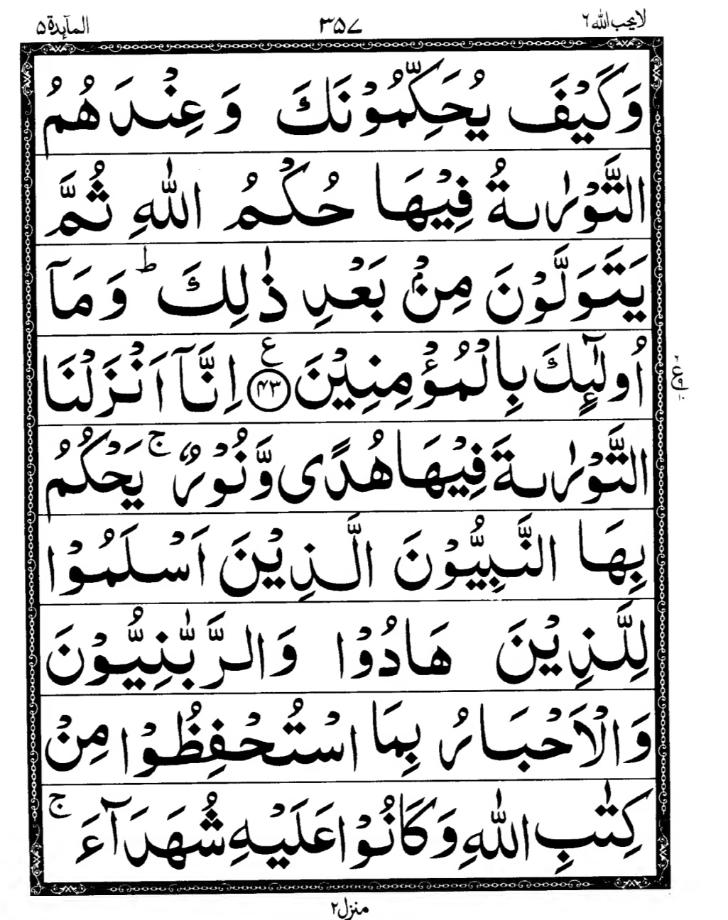 لا يحب الله ٦ ٣٥٧ المآىِٕدة ۵
وَكَيْفَ يُحَكِّمُوْنَكَ وَعِنْدَهُمُ
التَّوْرٰىةُ فِيْهَا حُكْمُ اللّٰهِ ثُمَّ
يَتَوَلَّوْنَ مِنْۢ بَعْدِ ذٰلِكَ ؕ وَمَاۤ
اُولٰٓىِٕكَ بِالْمُؤْمِنِيْنَ ﴿۴۳﴾ ع اِنَّاۤ اَنْزَلْنَا
التَّوْرٰىةَ فِيْهَا هُدًى وَّنُوْرٌ ۚ يَحْكُمُ
بِهَا النَّبِيُّوْنَ الَّذِيْنَ اَسْلَمُوْا
لِلَّذِيْنَ هَادُوْا وَالرَّبّٰنِيُّوْنَ
وَالْاَحْبَارُ بِمَا اسْتُحْفِظُوْا مِنْ
كِتٰبِ اللّٰهِ وَكَانُوْا عَلَيْهِ شُهَدَآءَ ۚ
منزل ۲